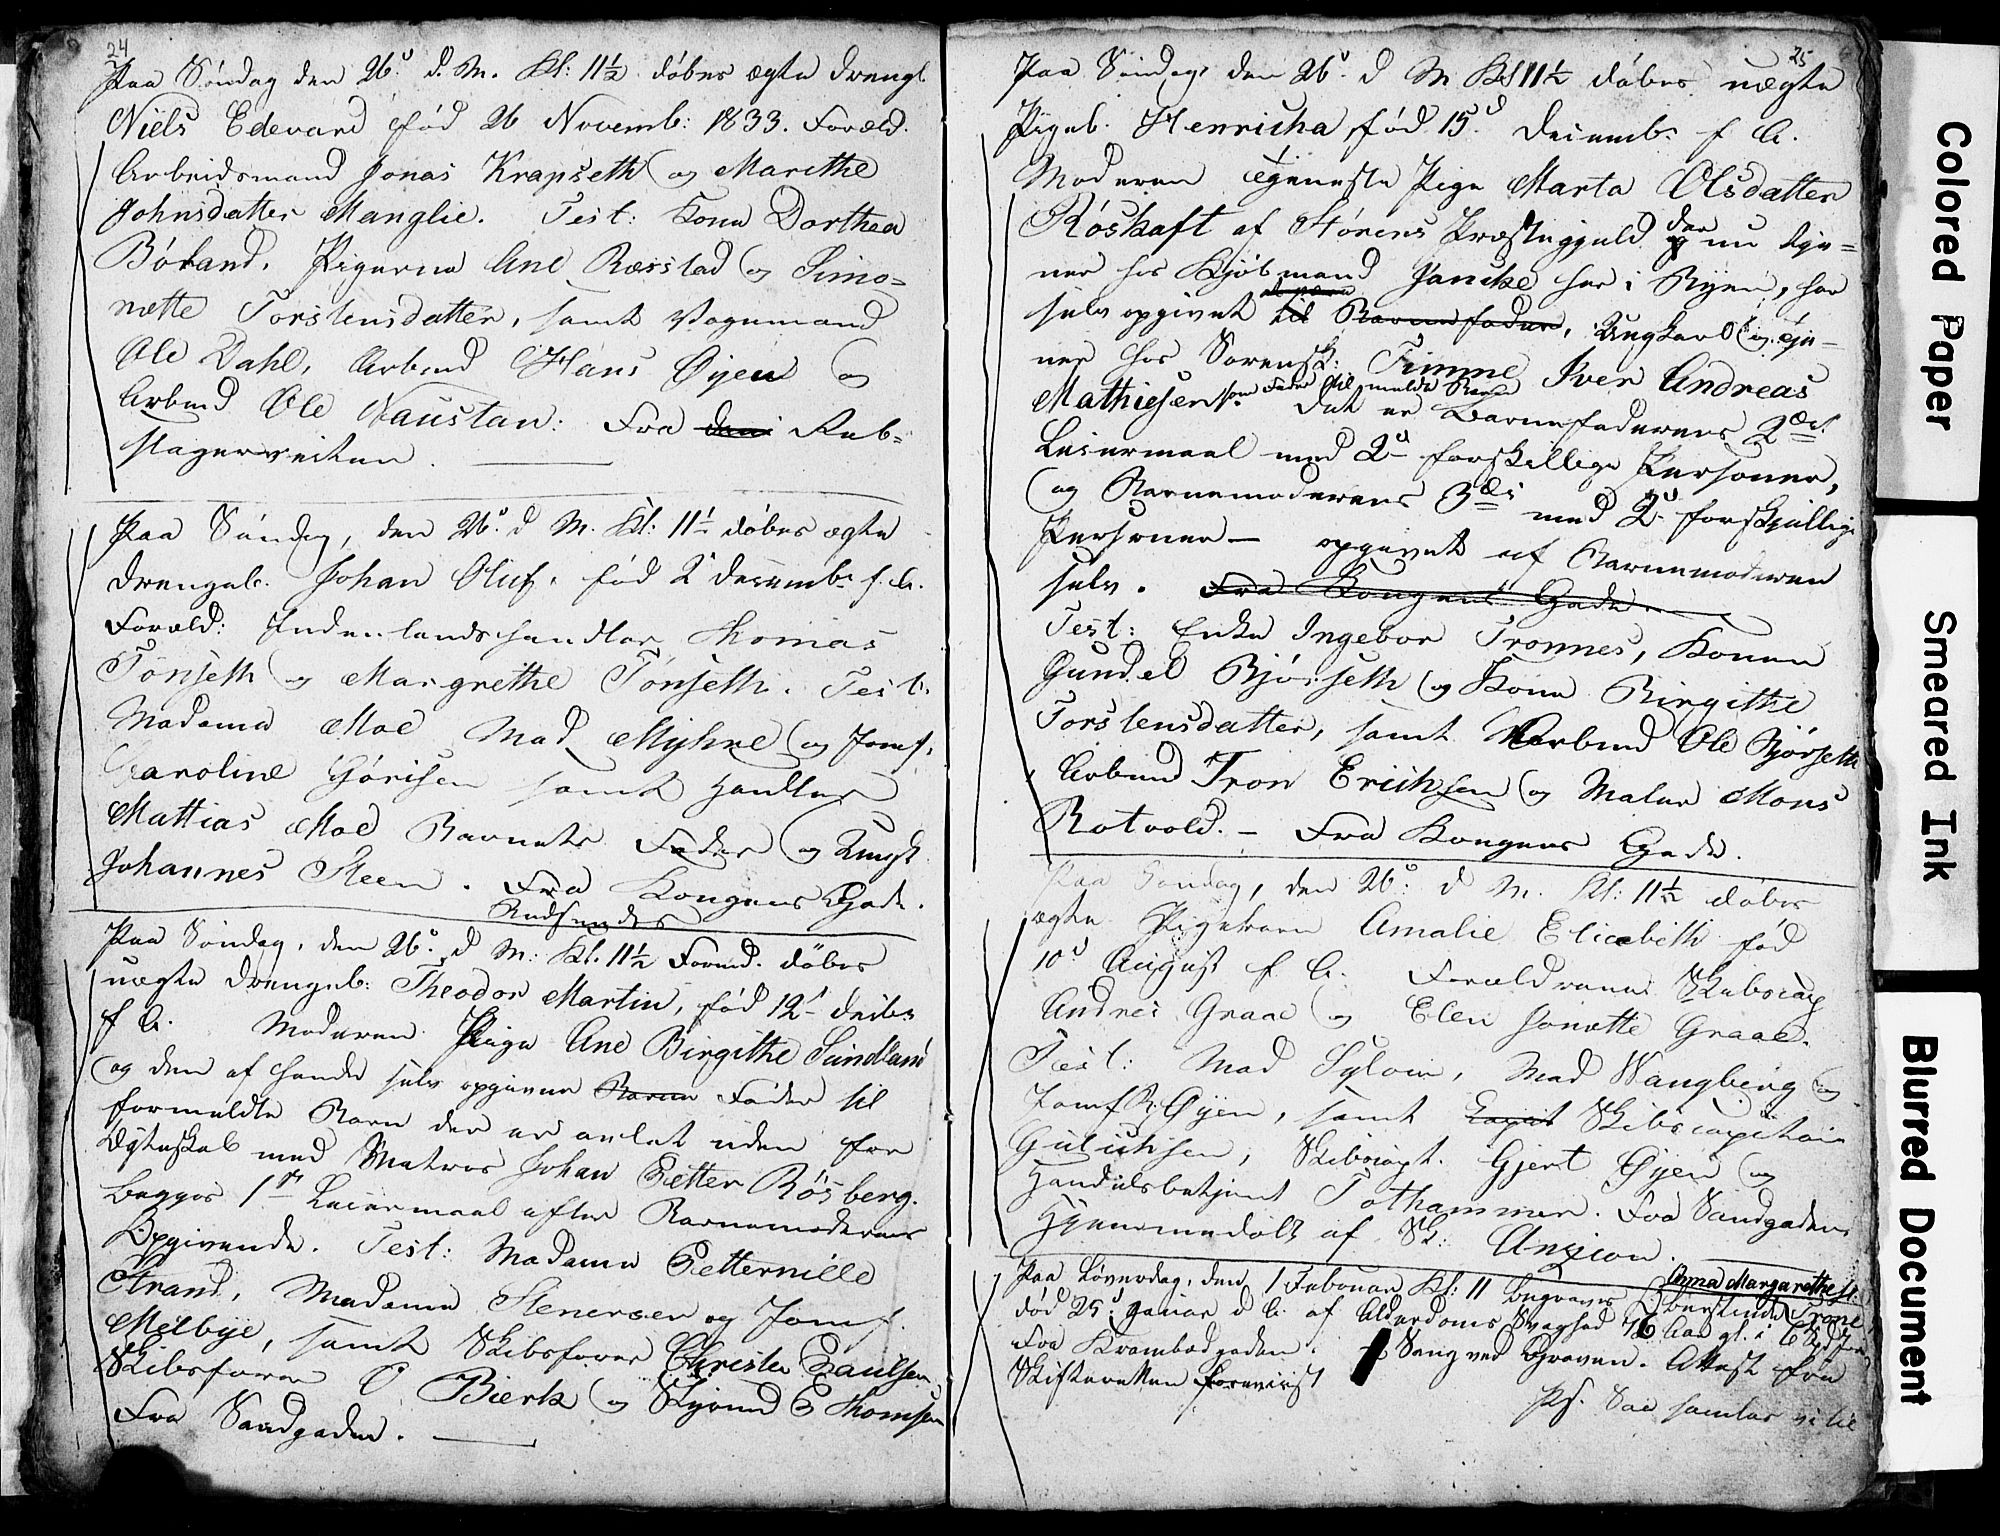 24
Paa Søndag den 26d. d. M. Kl: 11½ døbes ægte Drengb.
Niels Edevard fød 26 Novemb: 1833. Foræld.
Arbeidsmand Jonas Krapseth og Marithe
Johnsdatter Manglie. Test: Kone Dorthea
Böland, Pigerne Ane Ræsstad og Simo=
nette Torstensdatter, samt Vognmand
Ole Dahl, Arbmd Hans Øyen og
Arbmd Ole Naustan: Fra Reb=
slagerveiten.
Paa Søndag, den 26d. d. M. Kl: 11½ døbes ægte
Drengeb. Johan Oluf, fød 2d Desemb: f. A.
Foræld: Indenlandshandler Thomas
Tönseth og Margrethe Tönseth. Test:
Madame Moe Mad Myhre og Jomf.
Caroline Görisen samt Handler
Mattias Moe Barnets Fader og Ungk.
Johannes Steen. Fra Kongens Gade.
Paa Söndag, den 26d. d. M: Kl. 11½ Formd. döbes
uægte Drengeb: Theodor Martin, fød 12d Decbr
f A. Moderen Pige Ane Birgithe Sundland
og den af hende selv opgivne Barne Fader til
formeldte Barn der er avlet uden for
Ægteskab med Matros Johan Petter Rösberg.
Begges 1ste Leiermaal efter Barnemoderens
Opgivende. Test: Madame Petternille
Strand, Madame Stenersen og Jomf.
Melbye, samt Skibsfører Christen Paulsen
Skibsfører O Bierk og Styrmd E Thomsen
Fra Sandgaden.
25
Paa Søndag den 26d. d M Kl 11½ døbes uægte
Pigeb. Henricha, fød 15d Decemb: f A.
Moderen Tjeneste Pige Marta Olsdatter
Röskaft af Störens Præstegjæld der nu tje=
ner hos Kjöbmand Jancke her i Byen, har
selv opgivet til Barnefader, Ungkarl og tje=
ner hos Sorensk: Timme Iver Andreas
Mathiesen som Fader til meldte Barn
Det er Barnefaderens 2det
Leiermaal med 2de forskillige Personer,
og Barnemoderens 3die med 2de forskjællige
Personer — opgivet af Barnemoderen
selv. Fra Kongens Gade.
Test: Enke Ingebor Tronnes, Konen
Gundel Bjørseth og Kone Birgithe
Torstensdatter, samt Arbmd Ole Bjørseth
Arbmd Tron Erichsen og Maler Mons
Rotvold. — Fra Kongens Gade.
Paa Søndag, den 26d. d M. Kl: 11½ døbes
ægte Pigebarn Amalie Elicebeth fød
10d August f. A. Forældrene Skibscap
Andres Graae og Elen Jonette Graae.
Test: Mad Sylvin, Mad Wangberg og
Jomf R: Øyen, samt Skibscapitain
Gulichsen, Skibscapt. Gjert Øyen og
Handelsbetjent Tothammer. Fra Sandgaden
Hjemmedøbt af Angion.
Paa Løverdag, den 1 Februar Kl: 11 begraves Anna Margarethe
død 25d Januar d A. af Alderdoms Svaghed 76 Aar gl.
Fra Krambodgaden. Sang ved Graven. Attest fra
Skifteretten foreviist